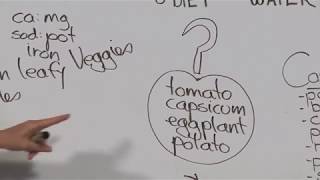 DIET
WATER
ca:mg
sod:pot
iron
leafy Veggies
?
tomato
capsicum
eggplant
potato